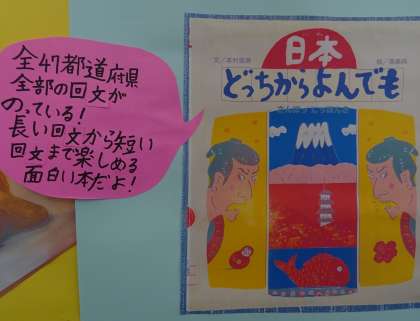 全47都道府県
全部の回文が
のっている!
長い回文から短い
回文まで楽しめる
面白い本だよ!
日本
どっちからよんでも